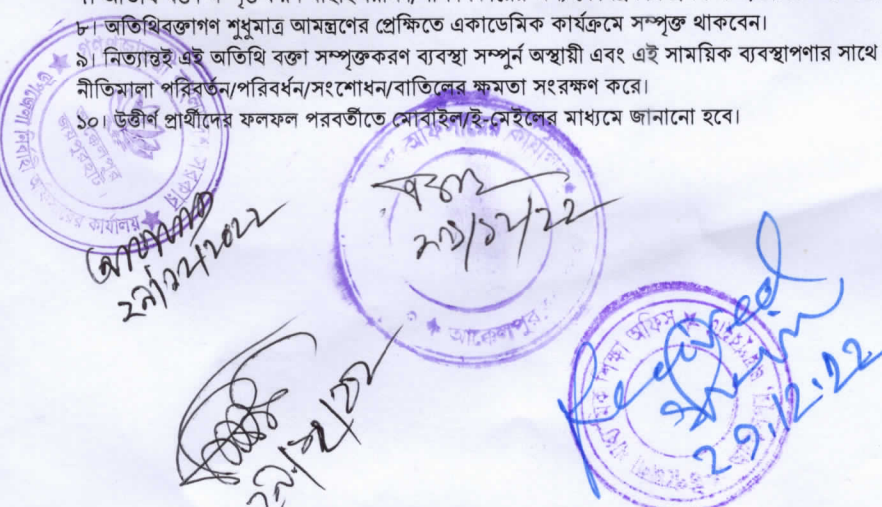 ৮। অতিথিবক্তাগণ শুধুমাত্র আমন্ত্রণের প্রেক্ষিতে একাডেমিক কার্যক্রমে সম্পৃক্ত থাকবেন।
৯। নিত্যান্তই এই অতিথি বক্তা সম্পৃক্তকরণ ব্যবস্থা সম্পুর্ন অস্থায়ী এবং এই সাময়িক ব্যবস্থাপণার সাথে
নীতিমালা পরিবর্তন/পরিবর্ধন/সংশোধন/বাতিলের ক্ষমতা সংরক্ষণ করে।
১০। উত্তীর্ণ প্রার্থীদের ফলফল পরবর্তীতে মোবাইল/ই-মেইলের মাধ্যমে জানানো হবে।
উপজেলা নির্বাহী অফিসারের কার্যালয়
জয়পুরহাট।
২৯/১২/২০২২
অফিসারের কার্যালয়
২৯/১২/২২
আক্কেলপুর
২৯/১২/২২
মাধ্যমিক শিক্ষা অফিস
Received
29.12.22